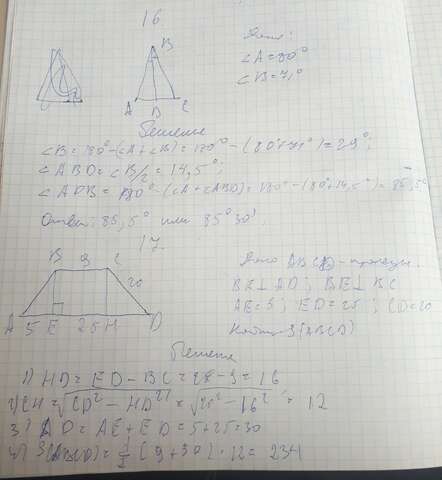 16
Дано:
∠A=80°
∠B=71°
B
A D C
Решение
∠B=180°-(∠A+∠B)=180°-(80°+71°)=29°;
∠ABD=∠B/2=14,5°;
∠ADB=180°-(∠A+∠ABD)=180°-(80°+14,5°)=85,5°
Ответ: 85,5° или 85°30'
17
B 9 C
20
A 5 E 25 H D
Дано ABCD-трапеция.
BE⊥AD; BE⊥BC
AE=5; ED=25; CD=20
Найти S(ABCD)
Решение
1) HD=ED-BC=25-9=16
2) CH=√CD²-HD²=√20²-16²=12
3) AD=AE+ED=5+25=30
4) S(ABCD)=1/2(9+30)·12=234